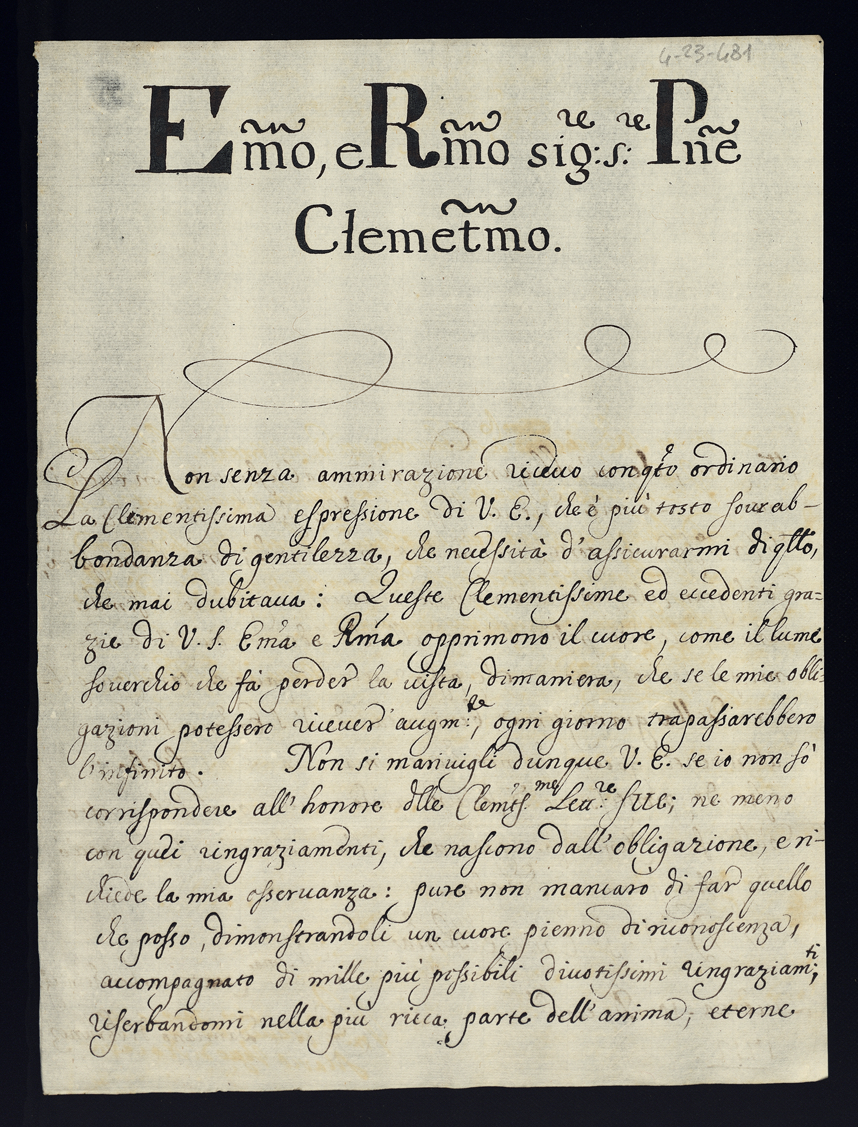 4-23-481
Emo, e Rmo sig:re s:re Pñe
Clemetmo.
Non senza ammirazione riceuo con qto ordinario
La Clementissima espressione di V. E., che è più tosto sourab-
bondanza di gentilezza, che necessità d'assicurarmi di qllo,
che mai dubitaua: Queste Clementissime ed eccedenti gra=
zie di V. S. Ema e Rma opprimono il cuore, come il lume
souerchio che fà perder la uista, dimaniera, che se le mie obli-
gazioni potessero riceuer augm:te, ogni giorno trapassarebbero
l'infinito. Non si marivigli dunque V. E. se io non sò
corrispondere all'honore dlle Clemtis:me Lett:re sue; ne meno
con quei ringraziamenti, che nascono dall'obligazione, e ri-
chiede la mia osseruanza: pure non mancarò di far quello
che posso, dimonstrandoli un cuore pienno di riconoscenza,
accompagnato di mille più possibili diuotissimi ringraziam:ti;
riserbandomi nella più ricca parte dell'anima, eterne